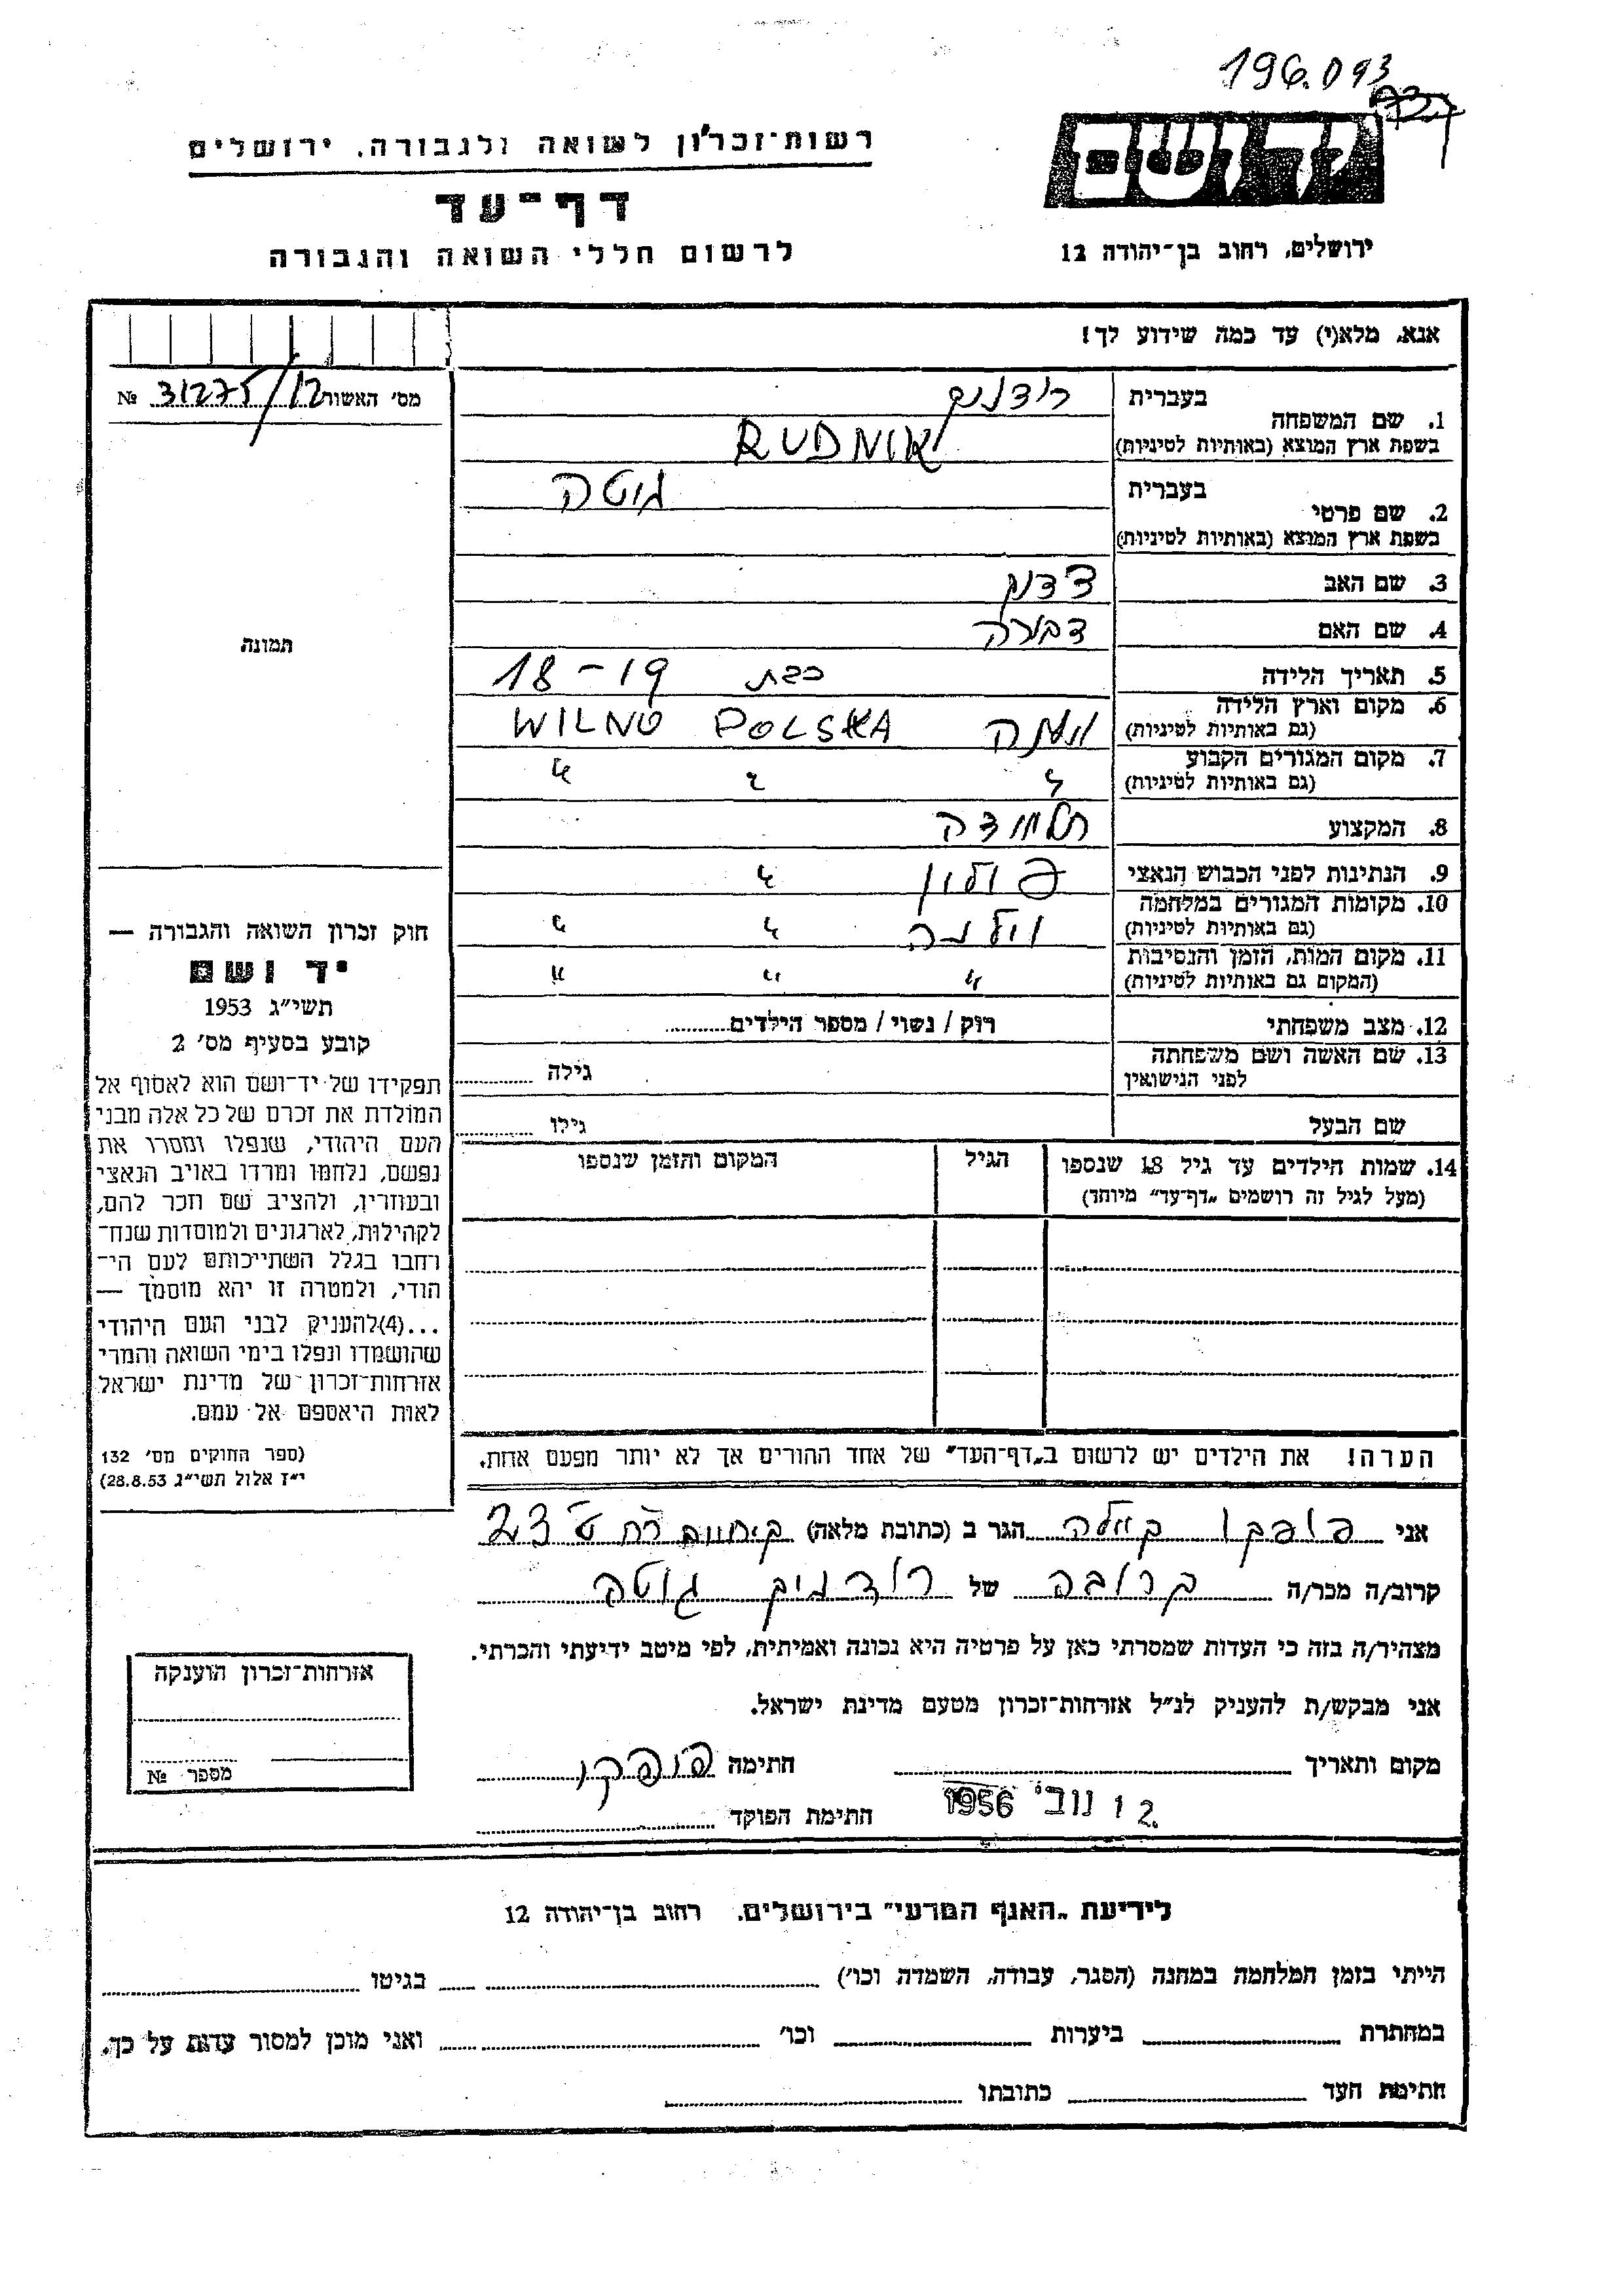 196.093
רשות־זכרון לשואה ולגבורה. ירושלים
דף־עד
לרשום חללי השואה והגבורה
יד ושם
ירושלים, רחוב בן־יהודה 12
אנא, מלא(י) עד כמה שידוע לך!
מס׳ האשור 31275/12 №
1. שם המשפחה
בעברית רודניק
בשפת ארץ המוצא (באותיות לטיניות) RUDNIK
2. שם פרטי
בעברית גוטה
בשפת ארץ המוצא (באותיות לטיניות)
3. שם האב
4. שם האם דבורה
5. תאריך הלידה כבת 18-19
6. מקום וארץ הלידה
(גם באותיות לטיניות) וילנה WILNO POLSKA
7. מקום המגורים הקבוע
(גם באותיות לטיניות) " " "
8. המקצוע תלמידה
9. הנתינות לפני הכבוש הנאצי פולין "
10. מקומות המגורים במלחמה
(גם באותיות לטיניות) וילנה " "
11. מקום המות, הזמן והנסיבות
(המקום גם באותיות לטיניות) " " "
12. מצב משפחתי רוק / נשוי / מספר הילדים
13. שם האשה ושם משפחתה
לפני הנישואין גילה
שם הבעל גילו
14. שמות הילדים עד גיל 18 שנספו
(מעל לגיל זה רושמים „דף־עד״ מיוחד)
הגיל
המקום והזמן שנספו
תמונה
חוק זכרון השואה והגבורה —
יד ושם
תשי״ג 1953
קובע בסעיף מס׳ 2
תפקידו של יד־ושם הוא לאסוף אל
המולדת את זכרם של כל אלה מבני
העם היהודי, שנפלו ומסרו את
נפשם, נלחמו ומרדו באויב הנאצי
ובעוזריו, ולהציב שם וזכר להם,
לקהילות, לארגונים ולמוסדות שנח־
רחבו בגלל השתייכותם לעם הי־
הודי, ולמטרה זו יהא מוסמך —
...(4)להעניק לבני העם היהודי
שהושמדו ונפלו בימי השואה והמרי
אזרחות־זכרון של מדינת ישראל
לאות היאספם אל עמם.
(ספר החוקים מס׳ 132
י״ז אלול תשי״ג 28.8.53)
הערה! את הילדים יש לרשום ב„דף־העד״ של אחד ההורים אך לא יותר מפעם אחת.
אני פופקו ביילה הגר ב (כתובת מלאה) 23
קרוב/ה מכר/ה קרובה של רודניק גוטה
מצהיר/ה בזה כי העדות שמסרתי כאן על פרטיה היא נכונה ואמיתית, לפי מיטב ידיעתי והכרתי.
אני מבקש/ת להעניק לנ״ל אזרחות־זכרון מטעם מדינת ישראל.
מקום ותאריך חתימה פופקו
12 נוב׳ 1956
חתימת הפוקד
אזרחות־זכרון הוענקה
מספר №
לידיעת „האגף המדעי״ בירושלים. רחוב בן־יהודה 12
הייתי בזמן המלחמה במחנה (הסגר, עבודה, השמדה וכו׳) בגיטו
במחתרת ביערות וכו׳ ואני מוכן למסור עדות על כך.
חתימת העד כתובתו